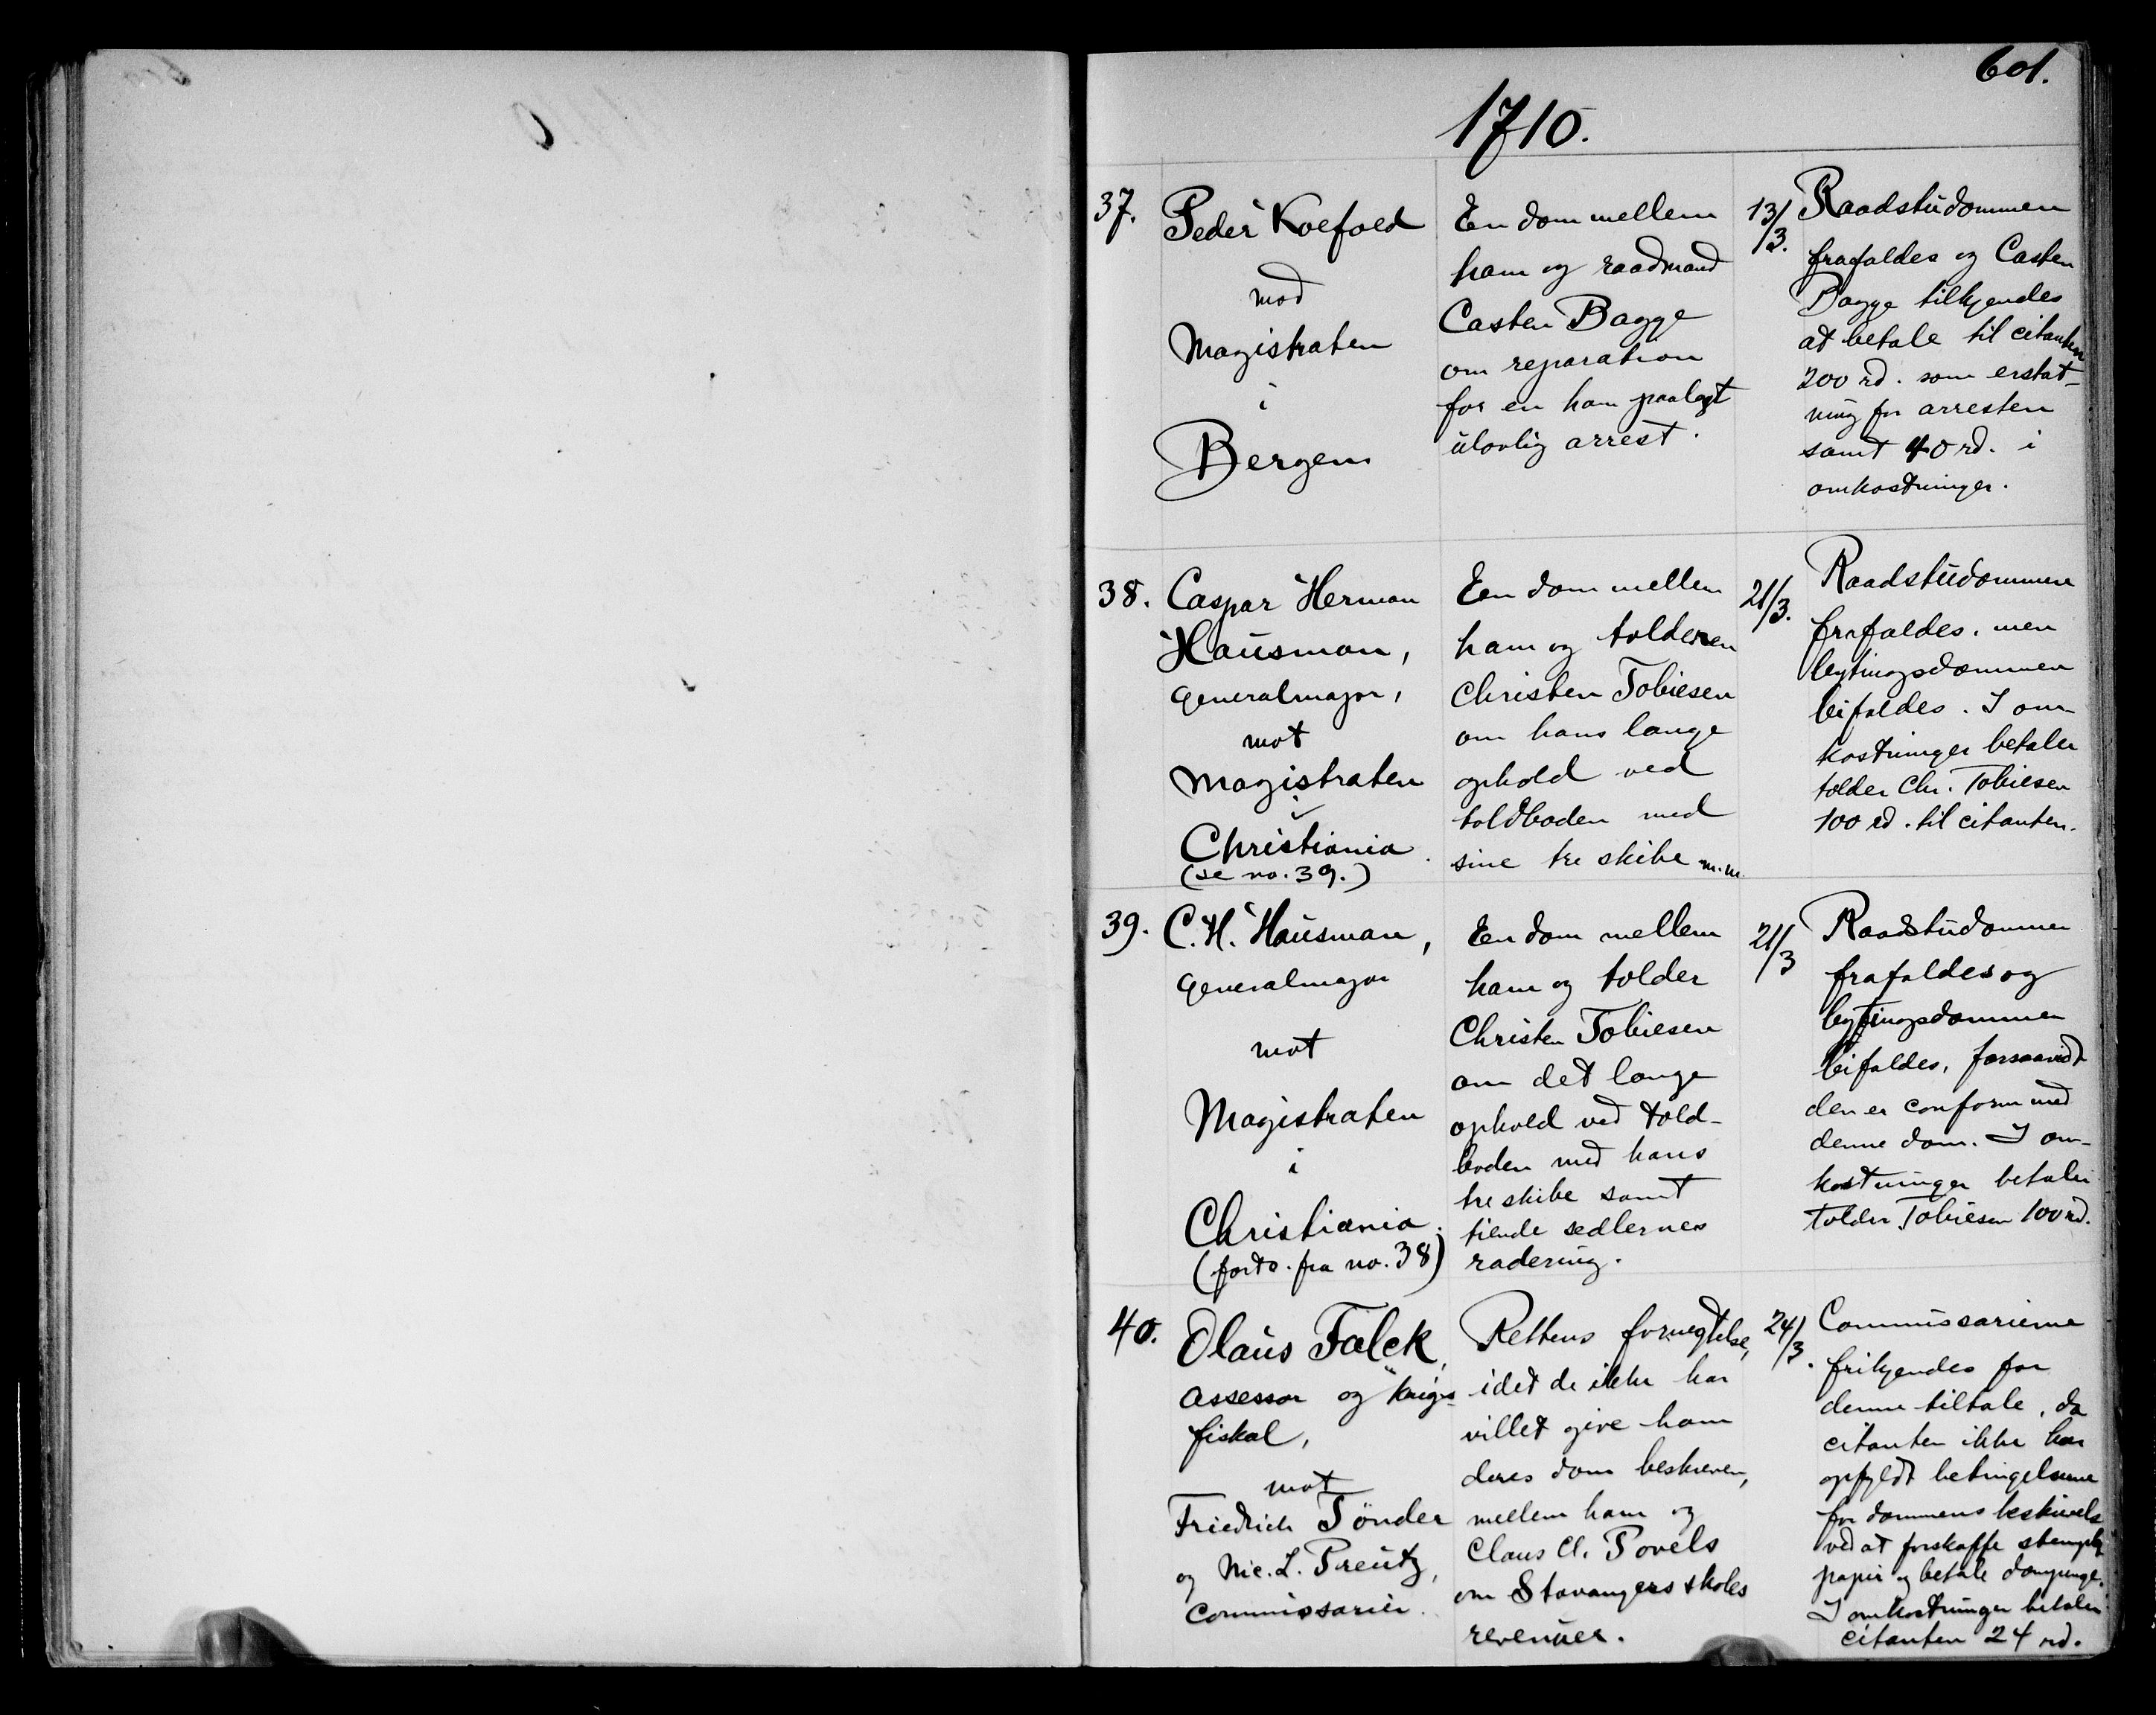 601.
1710.
37.
Peder Koefoed
mod
Magistraten
i
Bergen
En dom mellem
ham og raadmand
Casten Bagge
om reparation
for en ham paalagt
ulovlig arrest.
13/3.
Raadstudommen
frafaldes og Casten
Bagge tilkjendes
at betale til citanten
200 rd. som erstat-
ning for arresten
samt 40 rd. i
omkostninger.
38.
Caspar Herman
Hausman,
generalmajor,
mot
Magistraten
i
Christiania.
(se no. 39.)
Een dom mellem
ham og tolderen
Christen Tobiesen
om hans lange
ophold ved
toldboden med
sine tre skibe m.m.
21/3.
Raadstudommen
frafaldes, men
bytingsdommen
bifaldes. I om-
kostninger betaler
tolder Chr. Tobiesen
100 rd. til citanten.
39.
C. H. Hausman,
generalmajor
mot
Magistraten
i
Christiania.
(forts. fra no. 38)
Een dom mellem
ham og tolder
Christen Tobiesen
om det lange
ophold ved told-
boden med hans
tre skibe samt
tiende sedlernes
radering.
21/3
Raadstudommen
frafaldes og
bytingsdommen
bifaldes, forsaavidt
den er conform med
denne dom. I om-
kostninger betaler
tolder Tobiesen 100 rd.
40.
Olaus Falck,
assessor og krigs-
fiskal,
mot
Friedrich Tönder
og Nic. L. Preutz,
Commissarier.
Rettens fornegtelse,
idet de ikke har
villet give ham
deres dom beskreven,
mellem ham og
Claus Cl. Povels
om Stavangers skoles
revenuer.
24/3.
Commissarierne
frikjendes for
denne tiltale, da
citanten ikke har
opfyldt betingelserne
for dommens beskrivelse
ved at forskaffe stemplet
papir og betale dompenge.
I omkostninger betaler
citanten 24 rd.